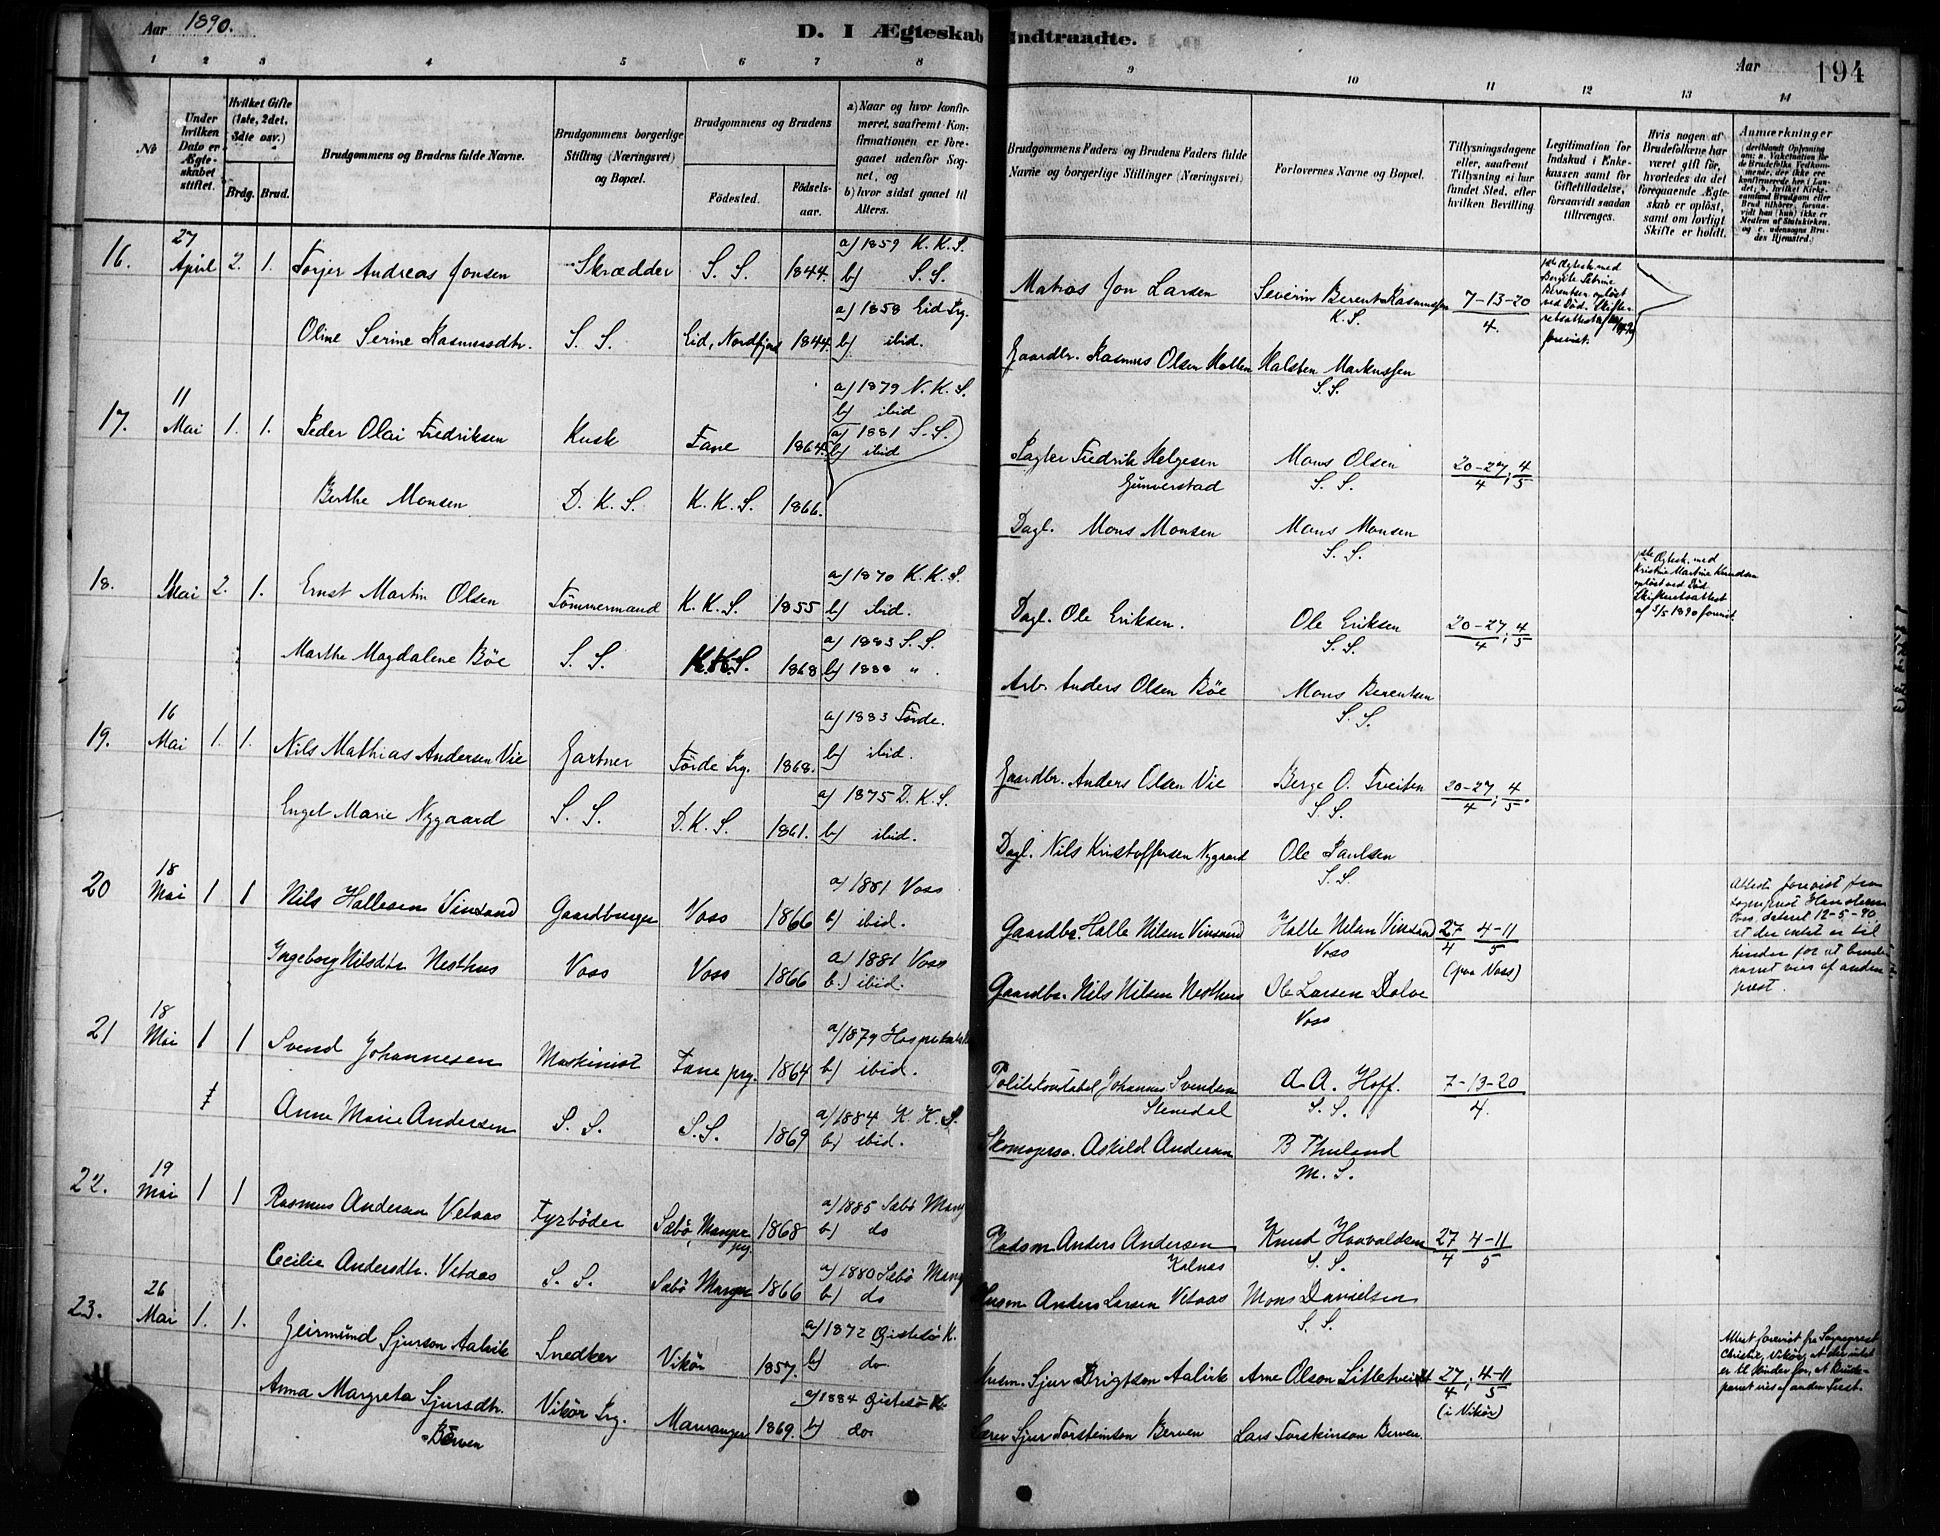 Aar 1890.
D. I Ægteskab Indtraadte.
Aar
194
1 2 3 4 5 6 7 8 9 10 11 12 13 14
No
Under hvilken Dato er Ægteskabet stiftet.
Hvilket Gifte (1ste, 2det, 3die osv.)
Brdg. Brud.
Brudgommens og Brudens fulde Navne.
Brudgommens borgerlige Stilling (Næringsvei) og Bopæl.
Brudgommens og Brudens
Fødested.
Fødselsaar.
a) Naar og hvor konfirmeret, saafremt Konfirmationen er foregaaet udenfor Sognet, og
b) hvor sidst gaaet til Alters.
Brudgommens Faders og Brudens Faders fulde Navne og borgerlige Stillinger (Næringsvei)
Forlovernes Navne og Bopæl.
Tillysningsdagene eller, saafremt Tillysning ei har fundet Sted, efter hvilken Bevilling.
Legitimation for Indskud i Enkekassen samt for Giftetilladelse, forsaavidt saadan tiltrænges.
Hvis nogen af Brudefolkene har været gift før, hvorledes da det foregaaende Ægteskab er opløst, samt om lovligt Skifte er holdt.
Anmærkninger (deriblandt Oplysning om: a. Vakcination for de Brudefolks Vedkommende, der ikke ere konfirmerede her i Landet; b. hvilket Kirkesamfund Brudgom eller Brud tilhører, forsaavidt han (hun) ikke er Medlem af Statskirken, og c. udensogns Brudes Hjemsted.)
16. 27 April 2. 1. Torjer Andreas Jonsen Skrædder S. S. 1844. a) 1859 K. K. S. b) S. S. Matros Jon Larsen Severin Berent Rasmussen K. S. 7-13-20/4. 1ste Ægtesk. med Bergite Serine Berentsen opløst ved Død. Skifteretsattest forevist.
Oline Serine Rasmusdtr. S. S. Eid, Nordfjord 1844. a) 1858 Eid Prg. b) ibid. Gaardbr. Rasmus Olsen Halsten Markussen S. S.
17. 11 Mai 1. 1. Peder Olai Fredriksen Kusk Fane 1864. a) 1879 N. K. S. b) ibid Fredrik Helgesen Gunverstad Mons Olsen S. S. 20-27/4; 4/5
Berthe Monsen D. K. S. K. K. S. 1866. a) 1881 S. S. b) ibid Dagl. Mons Monsen Mons Monsen S. S.
18. Mai 2. 1. Ernst Martin Olsen Tømmermand K. K. S. 1855 a) 1870 K. K. S. b) ibid. Dagl. Ole Eriksen. Ole Eriksen S. S. 20-27/4; 4/5 1ste Ægtesk. med Kristine Martine Knudsen opløst ved Død. Skifteretsattest af 5/5 1890 forevist.
Marthe Magdalene Bøe S. S. K. K. S. 1868 a) 1883 S. S. b) 1888 " . Arb. Anders Olsen Bøe Mons Berentsen S. S.
19. 16 Mai 1. 1. Nils Mathias Andersen Vie Gartner Førde Prg. 1868. a) 1883 Førde. b) ibid. Gaardbr. Anders Olsen Vie Berge O. Tveiten S. S. 20-27/4; 4/5.
Engel Marie Nygaard S. S. D. K. S. 1861. a) 1875 D. K. S. b) ibid. Dagl. Nils Kristoffersen Nygaard Ole Paulsen S. S.
20 18 Mai 1 1 Nils Hallesen Vinsand Gaardbruger Voss 1866 a) 1881 Voss b) ibid. Gaardbr. Halle Nilsen Vinsand Halle Nilsen Vinsand Voss 27/4 4-11/5 (paa Voss) Attest forevist fra Sogneprest Hanstein Voss, dateret 12-5-90, at der intet er til hinder for at brudeparret vies af anden prest.
Ingeborg Nilsdtr Nesthus Voss Voss 1866 a) 1881 Voss b.) ibid. Gaardbr. Nils Nilsen Nesthus Ole Larsen Dolve Voss
21 18 Mai 1 1 Svend Johannesen Maskinist Fane prg. 1864 a) 1879 b) ibid. Politikonstabel Johannes Svendsen Stenedal A A. Hoff. S. S. 7-13-20/4.
Anne Marie Andersen S. S. S. S. 1869 a) 1884 K. K. S. b) ibid. Askild Andersen B Thuland M. S.
22. 19 Mai 1 1 Rasmus Andersen Vetaas Fyrbøder Sæbø, Manger prg. 1868 a) 1885 Sæbø Mang b) do Anders Andersen Kalnæs Knud Haavaldsen S. S. 27/4 4-11/5
Cecilie Andersdtr. Vetaas S. S. Sæbø Manger 1866 a) 1880 Sæbø Mang b) do Husm Anders Larsen Vetaas Mons Davidsen S. S.
23. 26 Mai 1. 1. Geirmund Sjurson Aalvik Snedker Vikør 1857. a) 1872 Østesø K. b) do. Husm. Sjur Brigtson Aalvik Arne Olson Litletveit 27/4; 4-11/5 (i Vikør) Attest forevist fra Sogneprest Christie, Vikør, at der intet er til Hinder for, at Brudeparret vies af anden Prest.
Anna Margreta Sjursdtr. Berven Vikør Prg. Mauranger 1869. a) 1884 Østesø K. b) do. Lærer Sjur Torsteinson Berven Lars Torsteinson Berven.